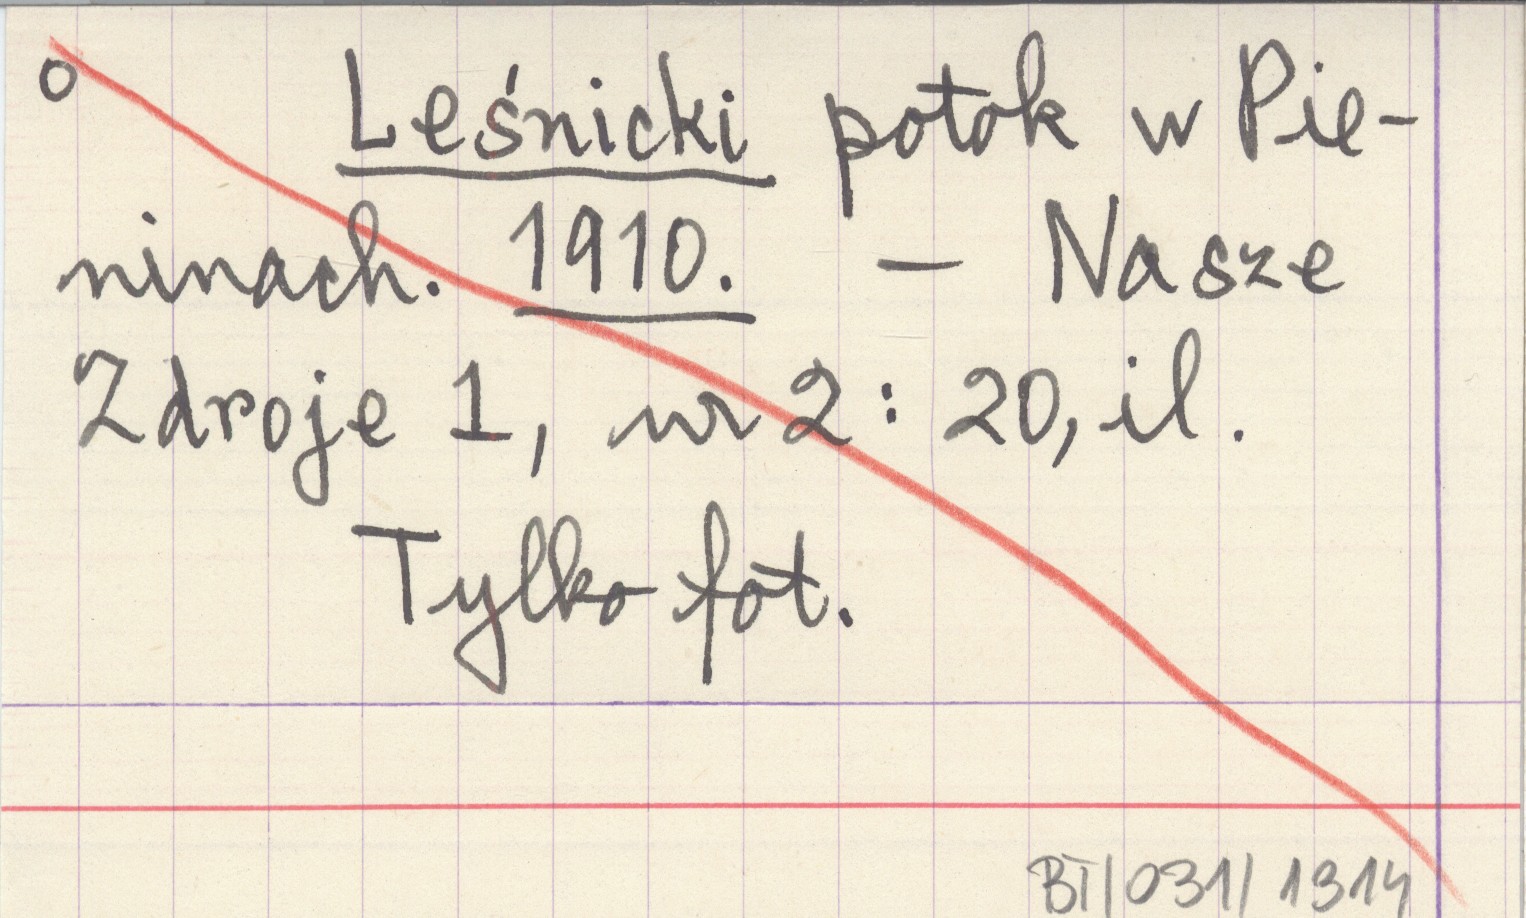 o Leśnicki potok w Pie-
ninach. 1910. – Nasze
Zdroje 1, nr 2 : 20, il.
Tylko fot.
BT/031/1314